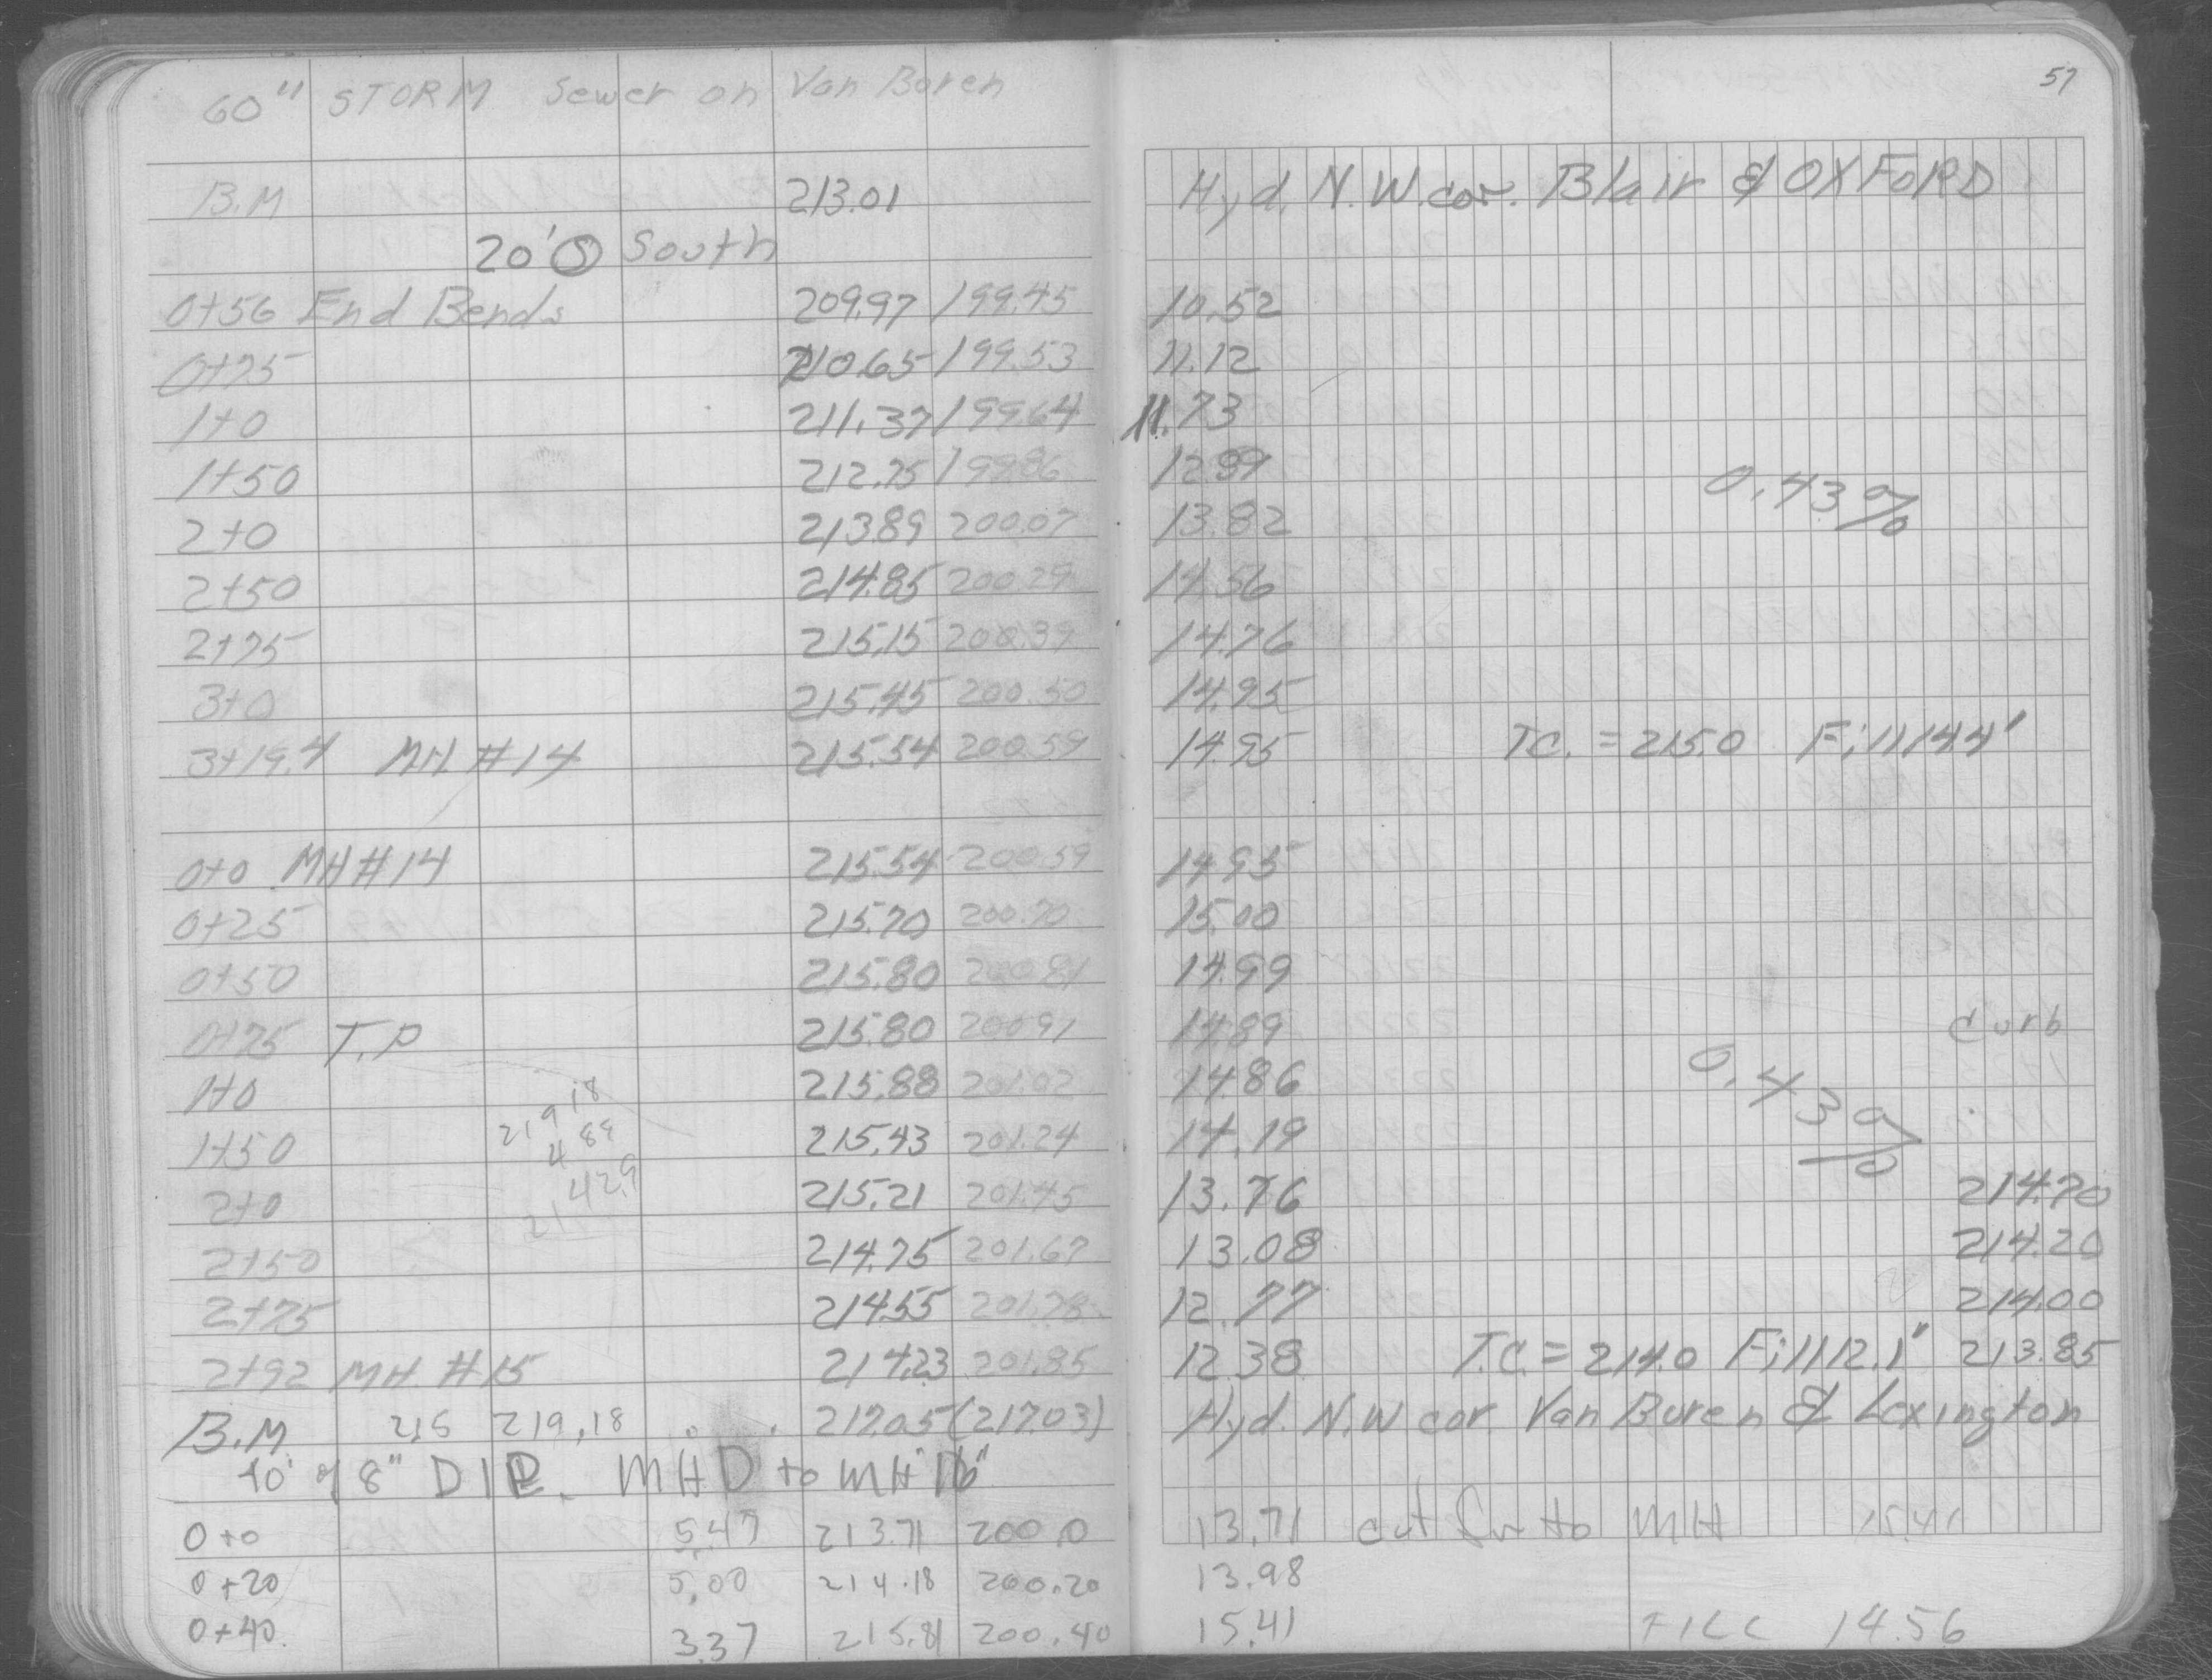 60" STORM Sewer on Van Buren
57
B.M 213.01 Hyd. N.W. cor. Blair & OXFORD
20' Ⓢ South
0+56 End Bends 209.97 199.45 10.52
0+75 210.65 199.53 11.12
1+0 211.37 199.64 11.73
1+50 212.75 199.86 12.89
0.43%
2+0 213.89 200.07 13.82
2+50 214.85 200.29 14.56
2+75 215.15 200.39 14.76
3+0 215.45 200.50 14.95
3+19.4 MH #14 215.54 200.59 14.95 T.C. = 215.0 Fill 14.4'
0+0 MH #14 215.54 200.59 14.95
0+25 215.70 200.70 15.00
0+50 215.80 200.81 14.99
0+75 T.P 215.80 200.91 14.89 Curb
1+0 215.88 201.02 14.86
0.43%
219 18
4 89
42.9
1+50 215.43 201.24 14.19
2+0 215.21 201.45 13.76 214.70
2+50 214.75 201.67 13.08 214.20
2+75 214.55 201.78 12.77 214.00
2+92 MH #15 214.23 201.85 12.38 T.C. = 214.0 Fill 12.1' 213.85
B.M. 219.18 217.05 (217.03) Hyd. N.W cor. Van Buren & Lexington
40' of 8" DIP. MH D to MH "16"
0+0 5.47 213.71 200.0 13.71 cut for to MH 15.41
0+20 5.00 214.18 200.20 13.98
0+40 3.37 215.81 200.40 15.41 FILL 14.56